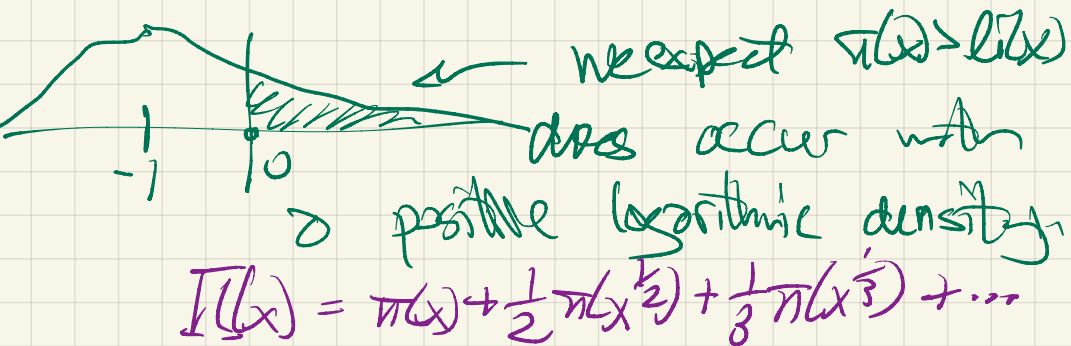 we expect π(x) > li(x)
does occur with
-1 0
a positive logarithmic density.
Π(x) = π(x) + 1/2 π(x^{1/2}) + 1/3 π(x^{1/3}) + ...